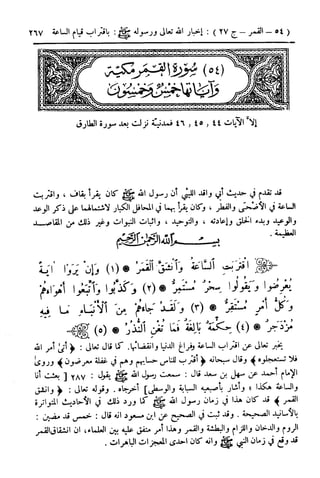 (٥٤ – القمر – ج ٢٧) : إخبار الله تعالى ورسوله ﷺ : باقتراب قيام الساعة ٢٦٧
(٥٤) سورة القمر مكية
وآياتها خمس وخمسون
إلا الآيات ٤٤ , ٤٥ , ٤٦ فمدنية نزلت بعد سورة الطارق
قد تقدم في حديث أبي واقد الليثي أن رسول الله ﷺ كان يقرأ بقاف ، واقتربت
الساعة في الأضحى والفطر ، وكان يقرأ بهما في المحافل الكبار لاشتمالهما على ذكر الوعد
والوعيد وبدء الخلق وإعادته ، والتوحيد ، واثبات النبوات وغير ذلك من المقاصد
العظيمة .
بسم الله الرحمن الرحيم
اقتربت الساعة وانشق القمر (١) وإن يروا آية
يعرضوا ويقولوا سحر مستمر (٢) وكذبوا واتبعوا أهواءهم
وكل أمر مستقر (٣) ولقد جاءهم من الأنباء ما فيه
مزدجر (٤) حكمة بالغة فما تغن النذر (٥)
يخبر تعالى عن اقتراب الساعة وفراغ الدنيا وانقضائها. كما قال تعالى : ﴿أتى أمر الله
فلا تستعجلوه﴾ وقال سبحانه ﴿اقترب للناس حسابهم وهم في غفلة معرضون﴾ وروى
الإمام أحمد عن سهل بن سعد قال : سمعت رسول الله ﷺ يقول : ٢٨٧ [ بعثت أنا
والساعة هكذا ؛ وأشار بأصبعيه السبابة والوسطى] أخرجاه . وقوله تعالى : ﴿وانشق
القمر﴾ قد كان هذا في زمان رسول الله ﷺ كما ورد ذلك في الأحاديث المتواترة
بالأسانيد الصحيحة . وقد ثبت في الصحيح عن ابن مسعود انه قال : خمس قد مضين :
الروم والدخان واللزام والبطشة والقمر وهذا أمر متفق عليه بين العلماء، ان انشقاق القمر
قد وقع في زمان النبي ﷺ وانه كان احدى المعجزات الباهرات .